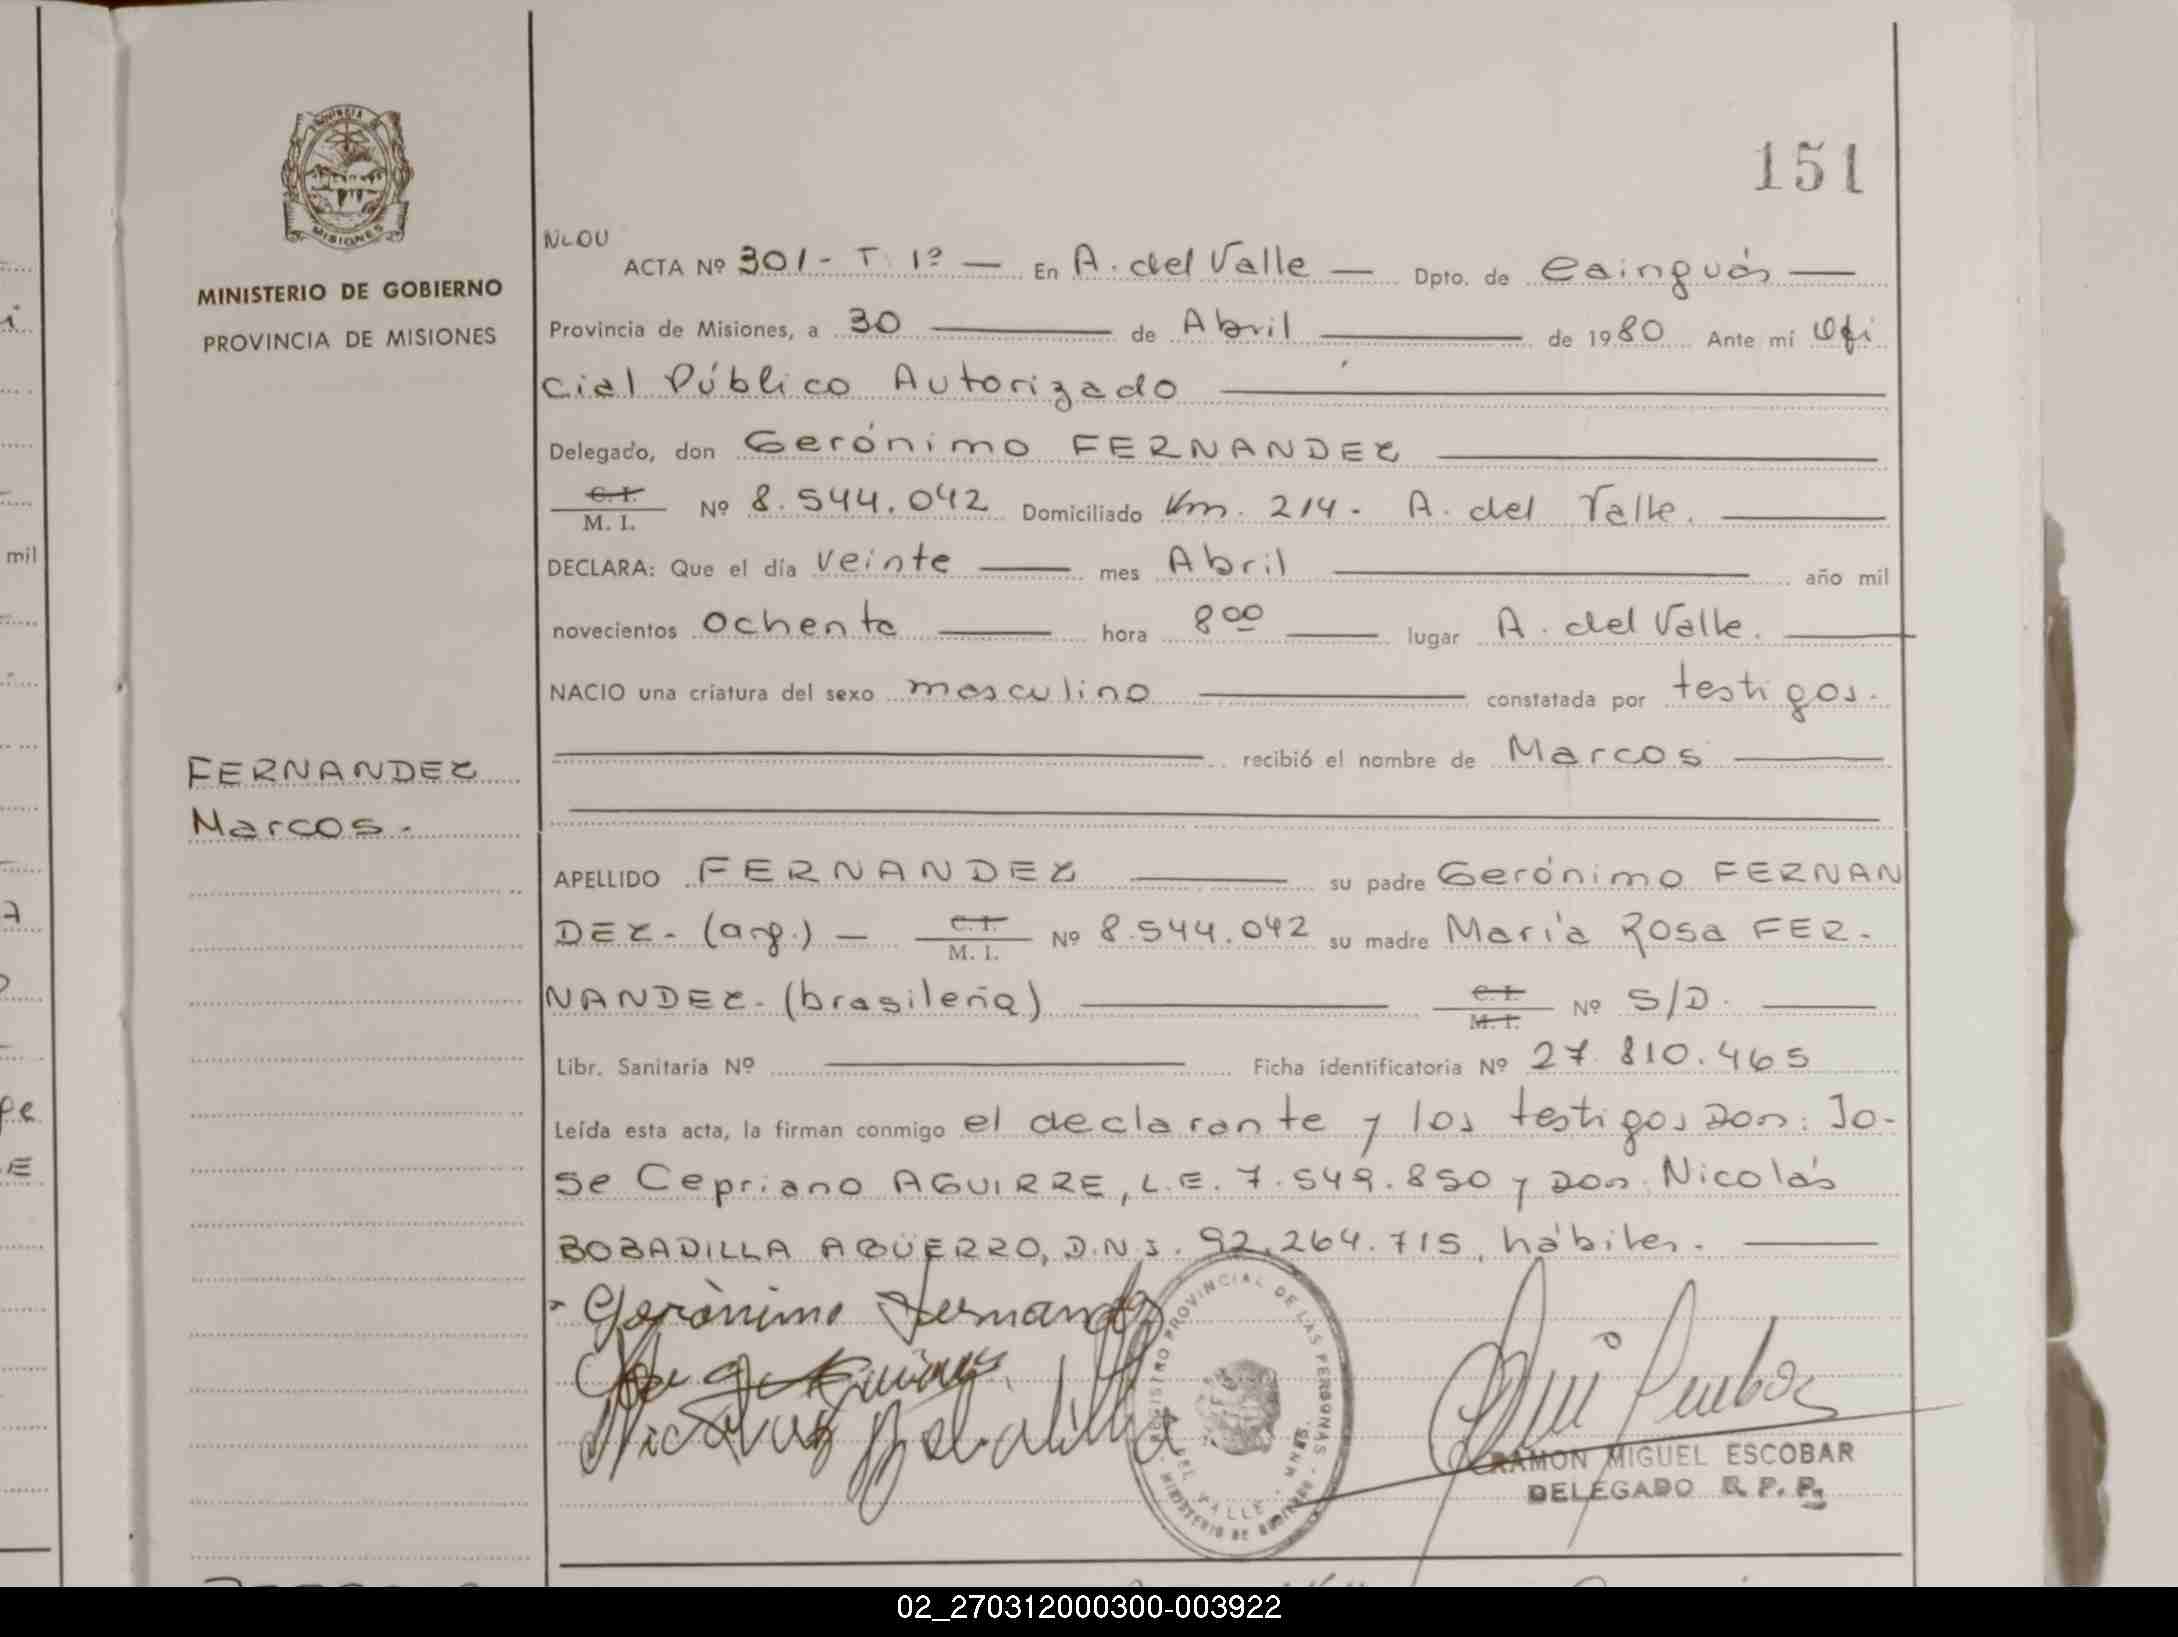 PROVINCIA DE
MISIONES
MINISTERIO DE GOBIERNO
PROVINCIA DE MISIONES
FERNANDEZ
Marcos.-
151
NLOU
ACTA Nº 301- T. 1º — En A. del Valle — Dpto. de Cainguás —
Provincia de Misiones, a 30 — de Abril — de 1980 Ante mí Ofi
cial Público Autorizado —
Delegado, don Gerónimo FERNANDEZ —
C. I.
M. I. Nº 8.544.042 Domiciliado Km. 214. A. del Valle. —
DECLARA: Que el día veinte — mes Abril — año mil
novecientos ochenta — hora 8 00 — lugar A. del Valle. —
NACIO una criatura del sexo masculino — constatada por testigos.
— recibió el nombre de Marcos —
APELLIDO FERNANDEZ — su padre Gerónimo FERNAN
DEZ- (arg.) — C. I. M. I. Nº 8.544.042 su madre María Rosa FER-
NANDEZ- (brasileña) — C. I. M. I. Nº S/D. —
Libr. Sanitaria Nº — Ficha identificatoria Nº 27.810.465
Leída esta acta, la firman conmigo el declarante y los testigos Don: Jo-
se Cepriano AGUIRRE, L.E. 7.549.850 y Don: Nicolás
BOBADILLA AGÜERRO, D.N.I. 92.264.715, hábiles. —
Gerònimo Fernandez
Nicolas Bobadilla
REGISTRO PROVINCIAL DE LAS PERSONAS
DEL VALLE - MNES.
MINISTERIO DE GOBIERNO
RAMON MIGUEL ESCOBAR
DELEGADO R. P. P.
mil
02_270312000300-003922